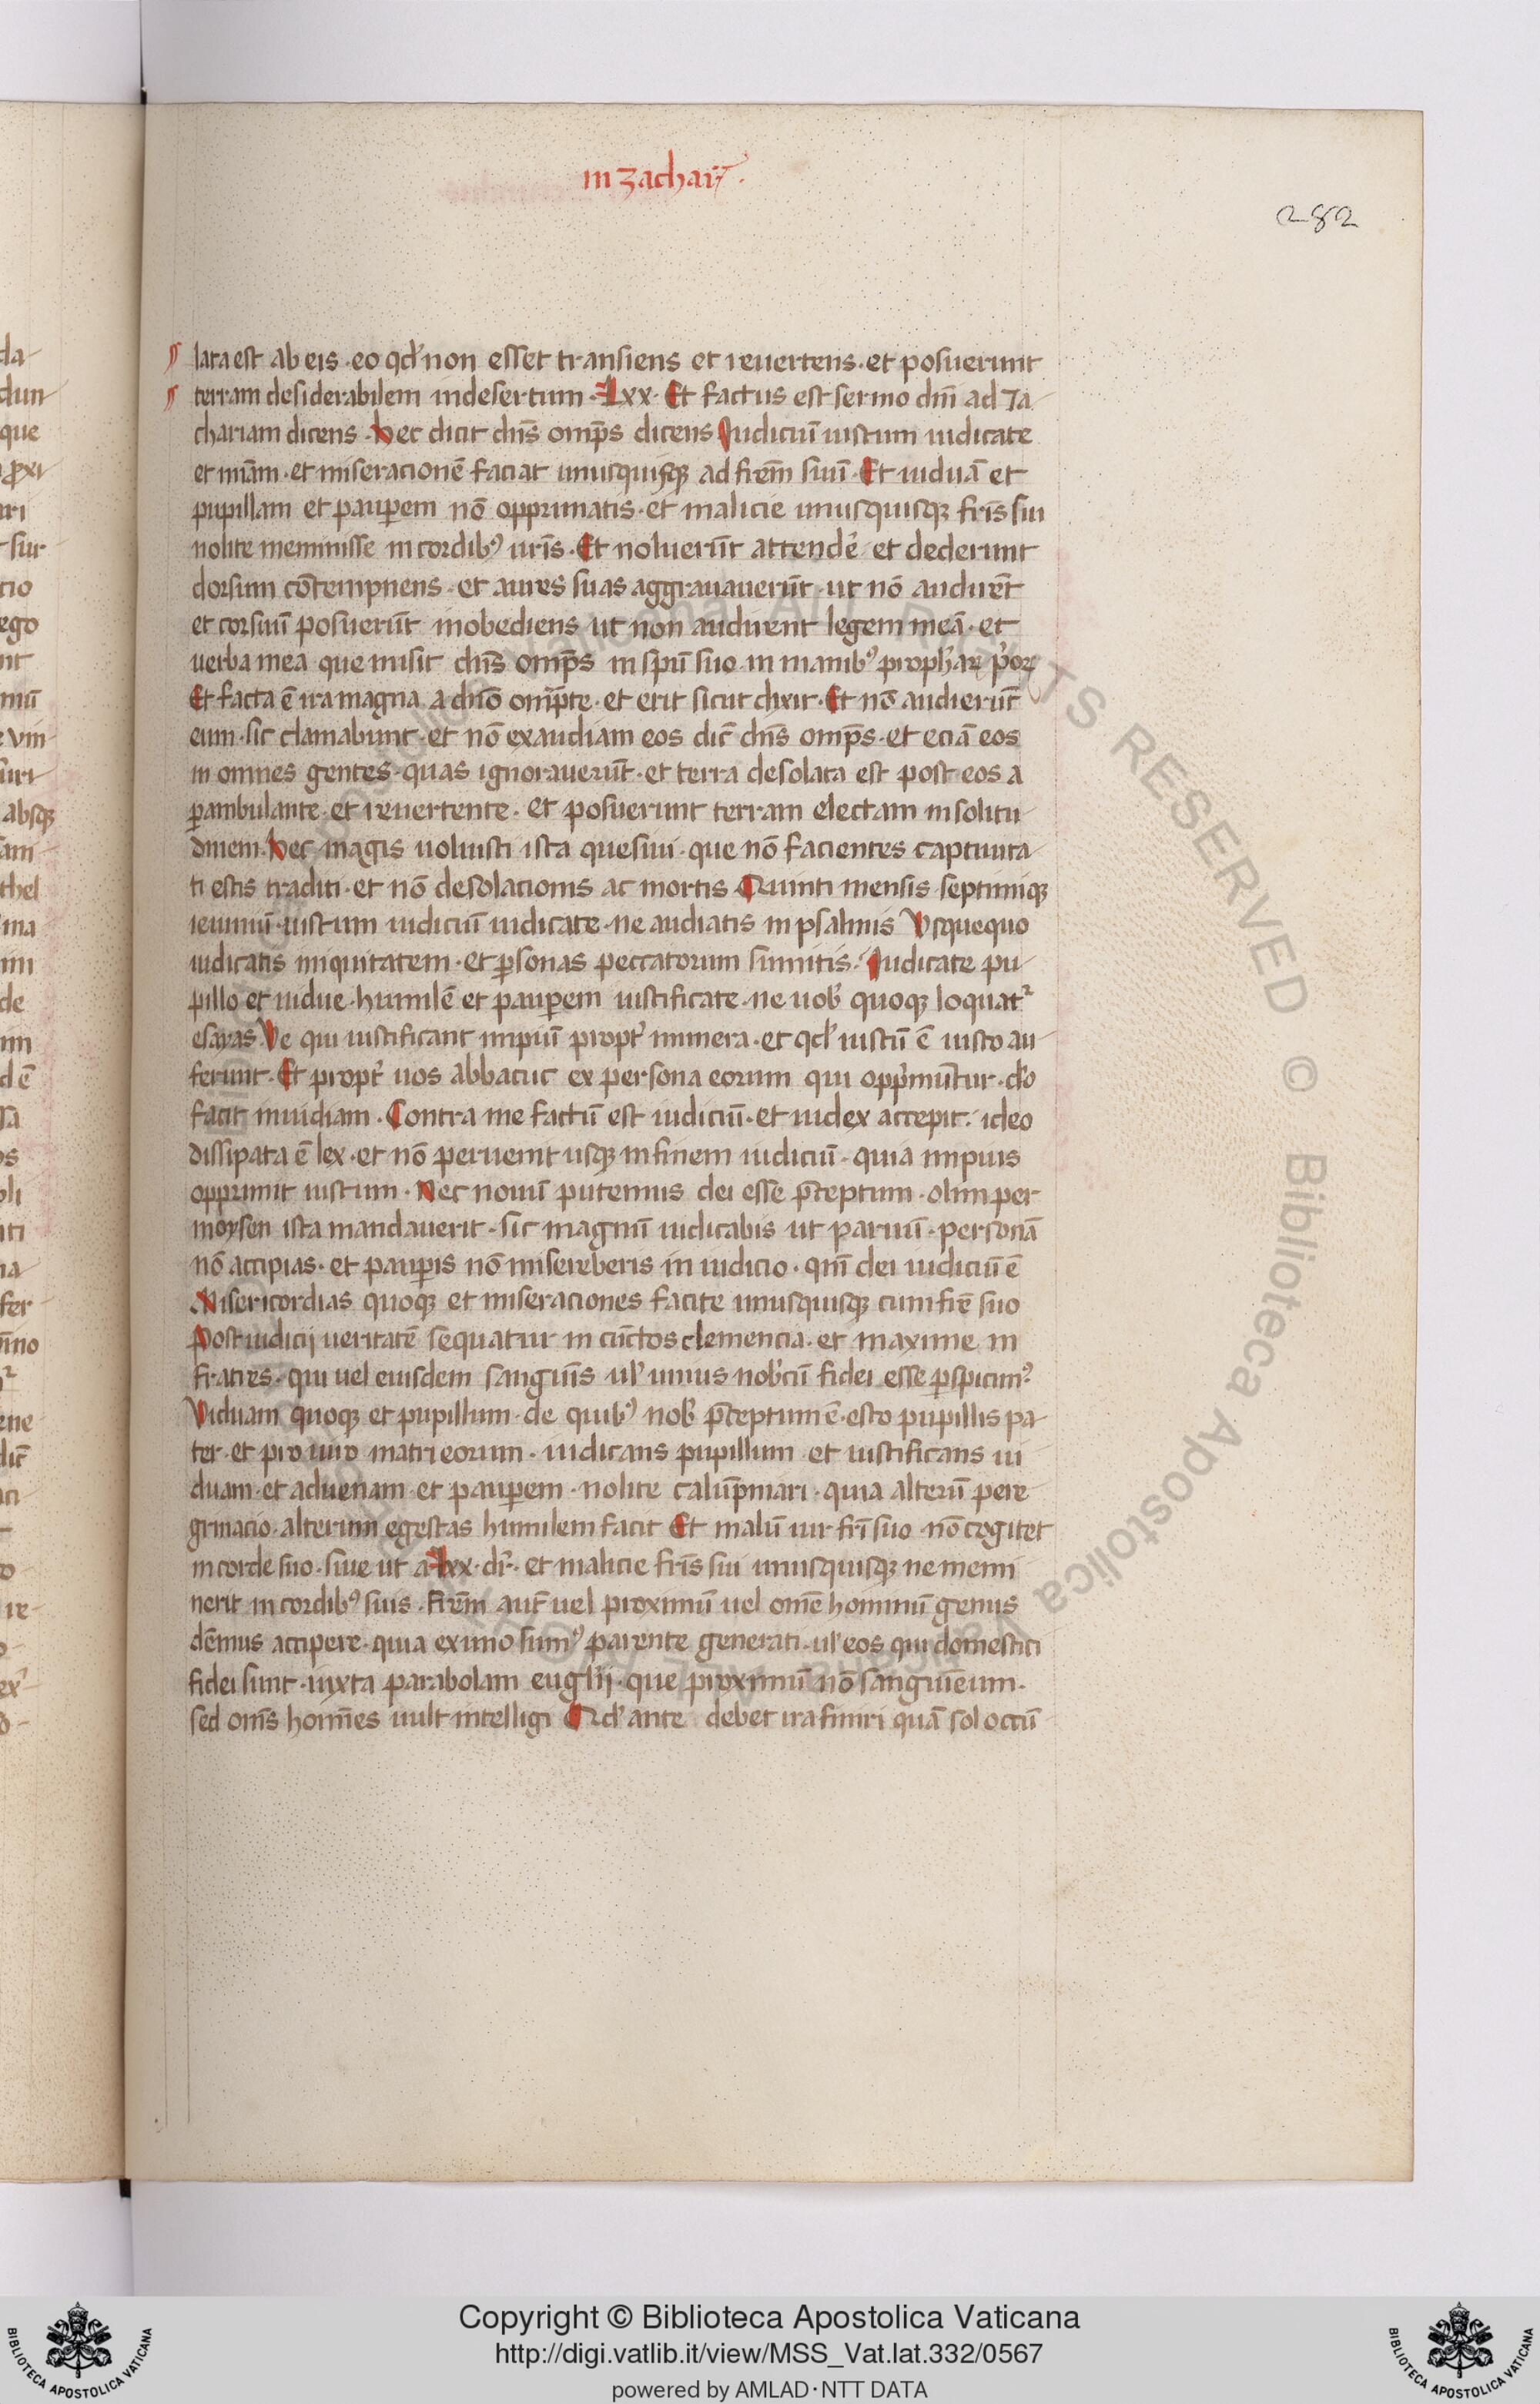 in zachar̄.
282
lata est ab eis · eo qd' non esset transiens et reuertens · et posuerunt
terram desiderabilem in desertum · Lxx · Et factus est sermo dn̄i ad Za
chariam dicens · Hec dicit dn̄s omp̄s dicens Iudiciū iustum iudicate
et mīam · et miseracionē faciat unusquisq; ad frēm suū · Et uiduā et
pupillam et paup̱em nō opprimatis · et malicie unusquisq; frīs sui
nolite meminisse in cordib᾿ ur̄is · Et noluerūt attendē et dederunt
dorsum cōtempnens · et aures suas aggrauauerūt · ut nō audirēt
et cor suū posuerūt inobediens ut non audirent legem meā · et
uerba mea que misit dn̄s omp̄s in sp̄u suo in manib᾿ prophetaꝝ p'oꝝ
Et facta ē ira magna a dn̄o omp̄te · et erit sicut dixit · Et nō audierūt
eum · sic clamabunt · et nō exaudiam eos dic̄ dn̄s omp̄s · et eciā eos
in omnes gentes · quas ignorauerūt · et terra desolata est post eos a
p̱ambulante · et reuertente · et posuerunt terram electam in solitu
dinem · Hec magis uoluisti ista quesiui · que nō facientes captiuita
ti estis traditi · et nō desolacionis ac mortis Quinti mensis septimiq;
ieiuniū · iustum iudiciū iudicate · ne audiatis in psalmis Vsquequo
iudicatis iniquitatem · et p̱sonas peccatorum sumitis · Iudicate pu
pillo et uidue · humilē et paup̱em iustificate · ne uob' quoq; loquat᾿
esayas Ve qui iustificant impiū propt' munera · et qd' iustū ē iusto au
ferunt · Et propt' uos abbacuc ex persona eorum qui opp'muntur · d'o
facit inuidiam · Contra me factū est iudiciū · et iudex accepit · ideo
dissipata ē lex · et nō peruenit usq; in finem iudiciū · quia impius
opprimit iustum · Nec nouū putemus dei esse p̄ceptum · olim per
moysen ista mandauerit · sic magnū iudicabis ut paruū · personā
nō accipias · et paup̱is nō misereberis in iudicio · qm̄ dei iudiciū ē
Misericordias quoq; et miseraciones facite unusquisq; cum frē suo
Post iudicij ueritatē sequatur in cūctos clemencia · et maxime in
fratres · qui uel eiusdem sanguīs ul' unius nob'cū fidei esse p̱spicim᾿
Viduam quoq; et pupillum · de quib᾿ nob' p̄ceptum ē · esto pupillis pa
ter · et pro uiro matri eorum · iudicans pupillum et iustificans ui
duam · et aduenam · et paup̱em · nolite calūpniari · quia alterū pere
grinacio · alterum egestas humilem facit Et malū uir fr̄i suo · nō cogitet
in corde suo · siue ut a Lxx · dr̄ · et malicie frīs sui unusquisq; ne memi
nerit in cordib᾿ suis · frēm aut̄ uel proximū uel omē hominū genus
dēmus accipere · quia ex uno sum᾿ parente generati · ul' eos qui domestici
fidei sunt · iuxta parabolam euglīj · que proximū nō sanguinēum ·
sed om̄s homīes uult intelligi Qd' ante debet ira finiri quā sol occū
Copyright © Biblioteca Apostolica Vaticana
http://digi.vatlib.it/view/MSS_Vat.lat.332/0567
powered by AMLAD·NTT DATA